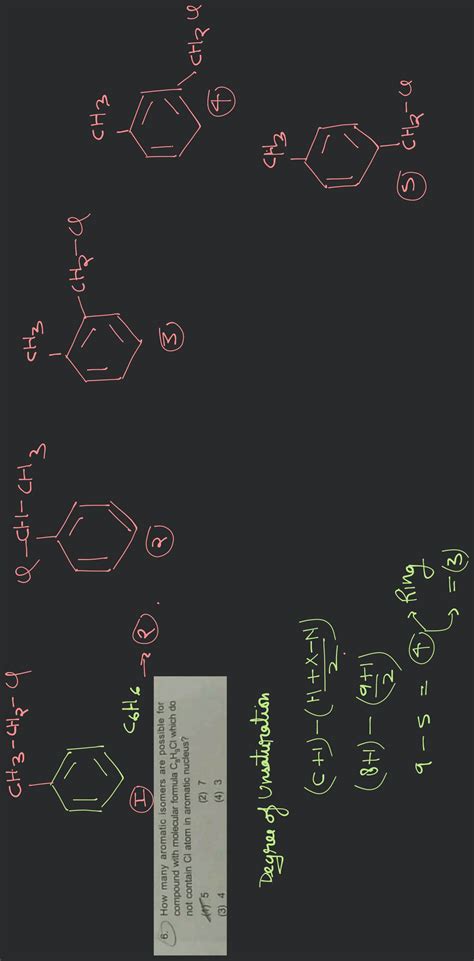 CH3-CH2-Cl
I
Cl-CH-CH3
2
CH3
CH2-Cl
3
CH3
CH2 Cl
4
CH3
CH2-Cl
5
C6H6 → 2.
6. How many aromatic isomers are possible for
compound with molecular formula C8H9Cl which do
not contain Cl atom in aromatic nucleus?
(1) 5 (2) 7
(3) 4 (4) 3
Degree of Unsaturation
(C+1)-(H+X-N)/2
(8+1) - (9+1)/2
9-5 = 4 → Ring
→ = (3)